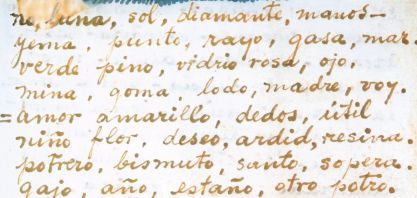 no, luna, sol, diamante, manos–
yema, punto, rayo, gasa, mar.
verde pino, vidrio rosa, ojo,
mina, goma, lodo, madre, voy.
=amor amarillo, dedos, útil
niño flor, deseo, ardid, resina.
potrero, bismuto, santo, sopera.
gajo, año, estaño, otro potro.